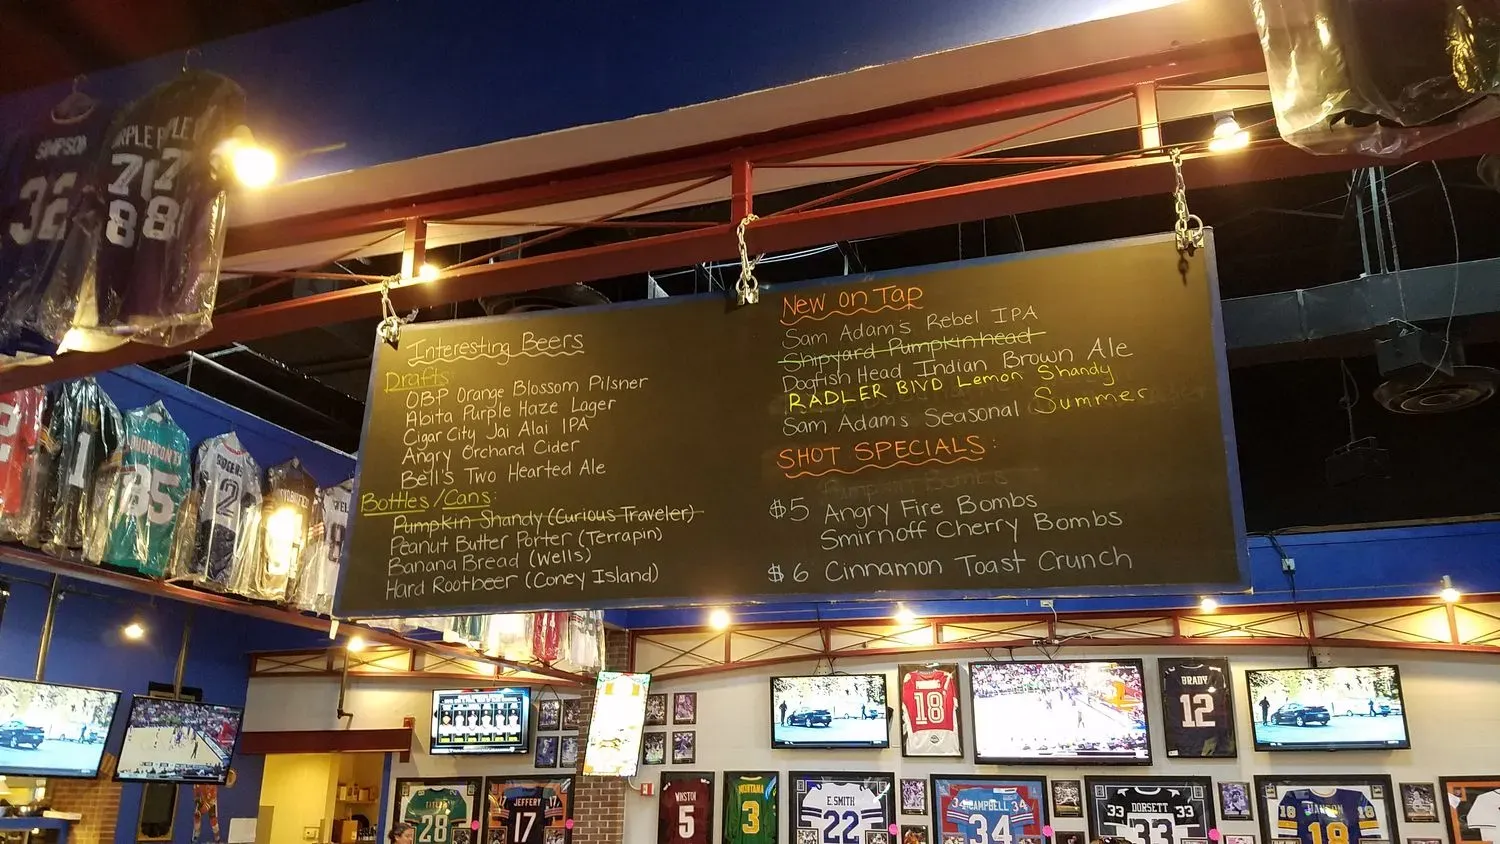 Interesting Beers
Drafts:
OBP Orange Blossom Pilsner
Abita Purple Haze Lager
Cigar City Jai Alai IPA
Angry Orchard Cider
Bell's Two Hearted Ale
Bottles/Cans:
Pumpkin Shandy (Curious Traveler)
Peanut Butter Porter (Terrapin)
Banana Bread (Wells)
Hard Rootbeer (Coney Island)
New on Tap
Sam Adam's Rebel IPA
Shipyard Pumpkinhead
Dogfish Head Indian Brown Ale
RADLER BIVD Lemon Shandy
Sam Adams Seasonal Summer
SHOT SPECIALS:
$5 Angry Fire Bombs
Smirnoff Cherry Bombs
$6 Cinnamon Toast Crunch
SIMPSON
32
78
88
1
85
2
18
BRADY
12
28
JEFFERY
17
WINSTON
5
MONTANA
3
E.SMITH
22
34 CAMPBELL 34
34
33 DORSETT 33
33
18 18
18